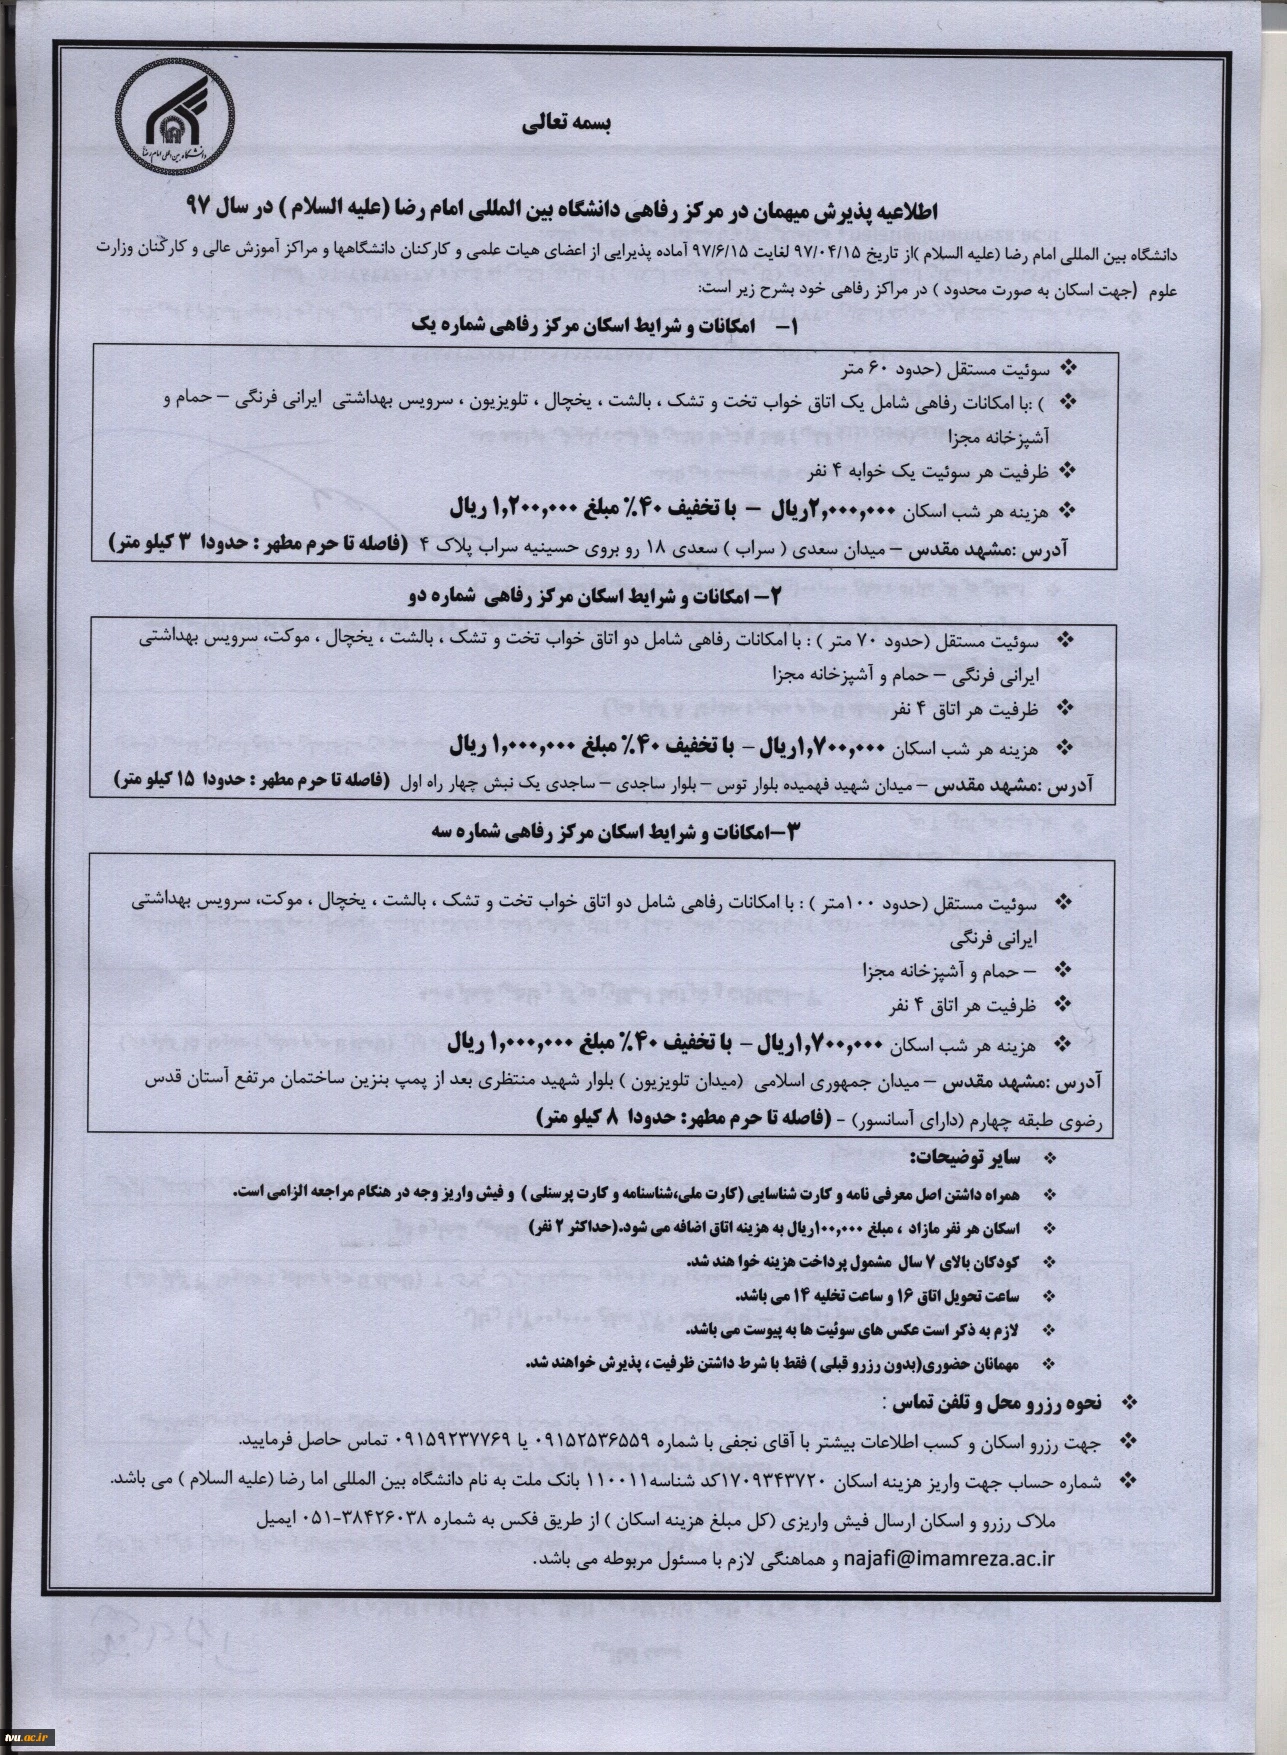 دانشگاه بین المللی امام رضا
بسمه تعالی
اطلاعیه پذیرش میهمان در مرکز رفاهی دانشگاه بین المللی امام رضا (علیه السلام ) در سال ۹۷
دانشگاه بین المللی امام رضا (علیه السلام )از تاریخ ۹۷/۰۴/۱۵ لغایت ۹۷/۶/۱۵ آماده پذیرایی از اعضای هیات علمی و کارکنان دانشگاهها و مراکز آموزش عالی و کارکنان وزارت
علوم (جهت اسکان به صورت محدود ) در مراکز رفاهی خود بشرح زیر است:
۱- امکانات و شرایط اسکان مرکز رفاهی شماره یک
❖ سوئیت مستقل (حدود ۶۰ متر
❖ ) :با امکانات رفاهی شامل یک اتاق خواب تخت و تشک ، بالشت ، یخچال ، تلویزیون ، سرویس بهداشتی ایرانی فرنگی – حمام و
آشپزخانه مجزا
❖ ظرفیت هر سوئیت یک خوابه ۴ نفر
❖ هزینه هر شب اسکان ۲,۰۰۰,۰۰۰ریال – با تخفیف ۴۰٪ مبلغ ۱,۲۰۰,۰۰۰ ریال
آدرس :مشهد مقدس – میدان سعدی ( سراب ) سعدی ۱۸ رو بروی حسینیه سراب پلاک ۴ (فاصله تا حرم مطهر : حدودا ۳ کیلو متر)
۲- امکانات و شرایط اسکان مرکز رفاهی شماره دو
❖ سوئیت مستقل (حدود ۷۰ متر ) : با امکانات رفاهی شامل دو اتاق خواب تخت و تشک ، بالشت ، یخچال ، موکت، سرویس بهداشتی
ایرانی فرنگی – حمام و آشپزخانه مجزا
❖ ظرفیت هر اتاق ۴ نفر
❖ هزینه هر شب اسکان ۱,۷۰۰,۰۰۰ریال – با تخفیف ۴۰٪ مبلغ ۱,۰۰۰,۰۰۰ ریال
آدرس :مشهد مقدس – میدان شهید فهمیده بلوار توس – بلوار ساجدی – ساجدی یک نبش چهار راه اول (فاصله تا حرم مطهر : حدودا ۱۵ کیلو متر)
۳-امکانات و شرایط اسکان مرکز رفاهی شماره سه
❖ سوئیت مستقل (حدود ۱۰۰متر ) : با امکانات رفاهی شامل دو اتاق خواب تخت و تشک ، بالشت ، یخچال ، موکت، سرویس بهداشتی
ایرانی فرنگی
❖ – حمام و آشپزخانه مجزا
❖ ظرفیت هر اتاق ۴ نفر
❖ هزینه هر شب اسکان ۱,۷۰۰,۰۰۰ریال – با تخفیف ۴۰٪ مبلغ ۱,۰۰۰,۰۰۰ ریال
آدرس :مشهد مقدس – میدان جمهوری اسلامی (میدان تلویزیون ) بلوار شهید منتظری بعد از پمپ بنزین ساختمان مرتفع آستان قدس
رضوی طبقه چهارم (دارای آسانسور) - (فاصله تا حرم مطهر: حدودا ۸ کیلو متر)
❖ سایر توضیحات:
❖ همراه داشتن اصل معرفی نامه و کارت شناسایی (کارت ملی،شناسنامه و کارت پرسنلی ) و فیش واریز وجه در هنگام مراجعه الزامی است.
❖ اسکان هر نفر مازاد ، مبلغ ۱۰۰,۰۰۰ریال به هزینه اتاق اضافه می شود.(حداکثر ۲ نفر)
❖ کودکان بالای ۷ سال مشمول پرداخت هزینه خوا هند شد.
❖ ساعت تحویل اتاق ۱۶ و ساعت تخلیه ۱۴ می باشد.
❖ لازم به ذکر است عکس های سوئیت ها به پیوست می باشد.
❖ مهمانان حضوری(بدون رزرو قبلی ) فقط با شرط داشتن ظرفیت ، پذیرش خواهند شد.
❖ نحوه رزرو محل و تلفن تماس :
❖ جهت رزرو اسکان و کسب اطلاعات بیشتر با آقای نجفی با شماره ۰۹۱۵۲۵۳۶۵۵۹ یا ۰۹۱۵۹۲۳۷۷۶۹ تماس حاصل فرمایید.
❖ شماره حساب جهت واریز هزینه اسکان ۱۷۰۹۳۴۳۷۲۰کد شناسه۱۱۰۰۱۱ بانک ملت به نام دانشگاه بین المللی اما رضا (علیه السلام ) می باشد.
ملاک رزرو و اسکان ارسال فیش واریزی (کل مبلغ هزینه اسکان ) از طریق فکس به شماره ۳۸۴۲۶۰۳۸-۰۵۱ ایمیل
najafi@imamreza.ac.ir و هماهنگی لازم با مسئول مربوطه می باشد.
tvu.ac.ir